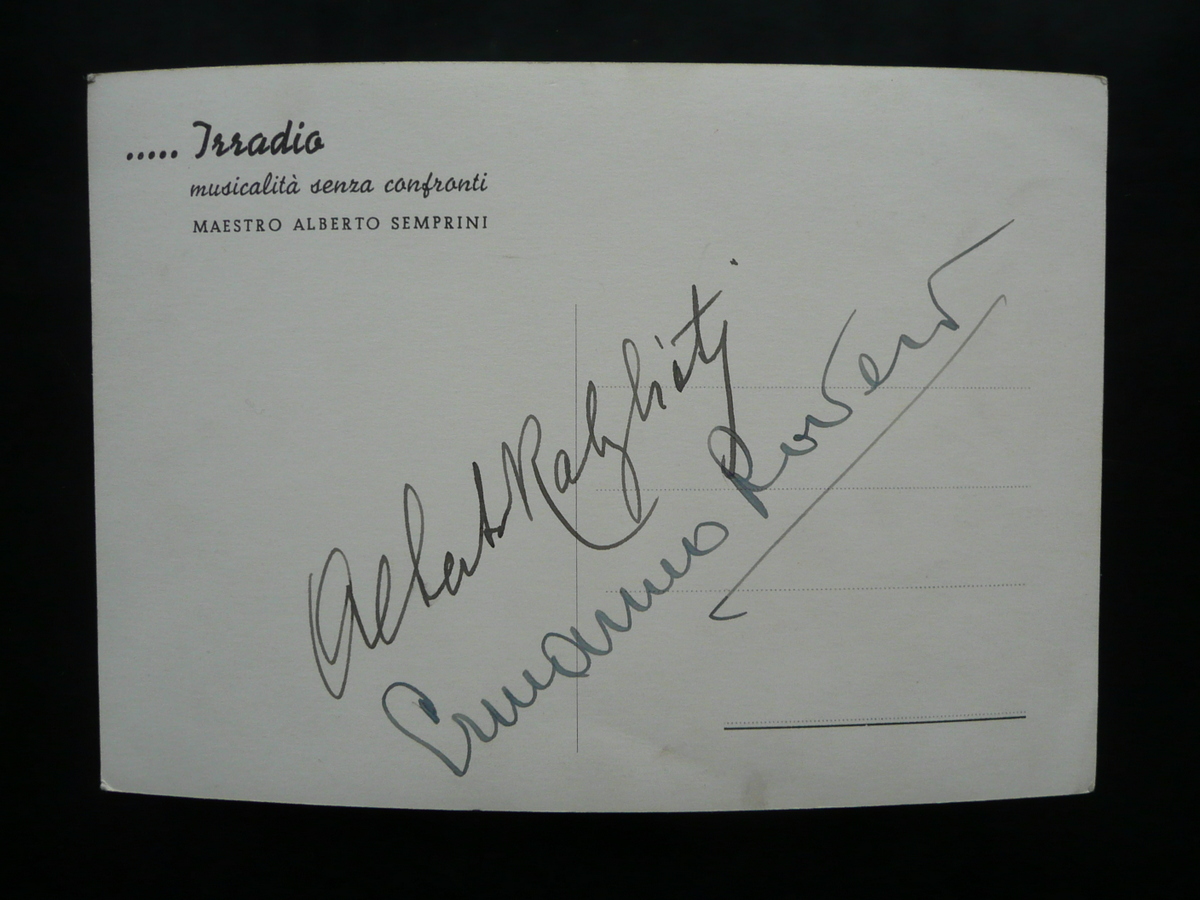 ..... Irradio
musicalità senza confronti
MAESTRO ALBERTO SEMPRINI
Alberto Rabagliati
Ermanno Roveri